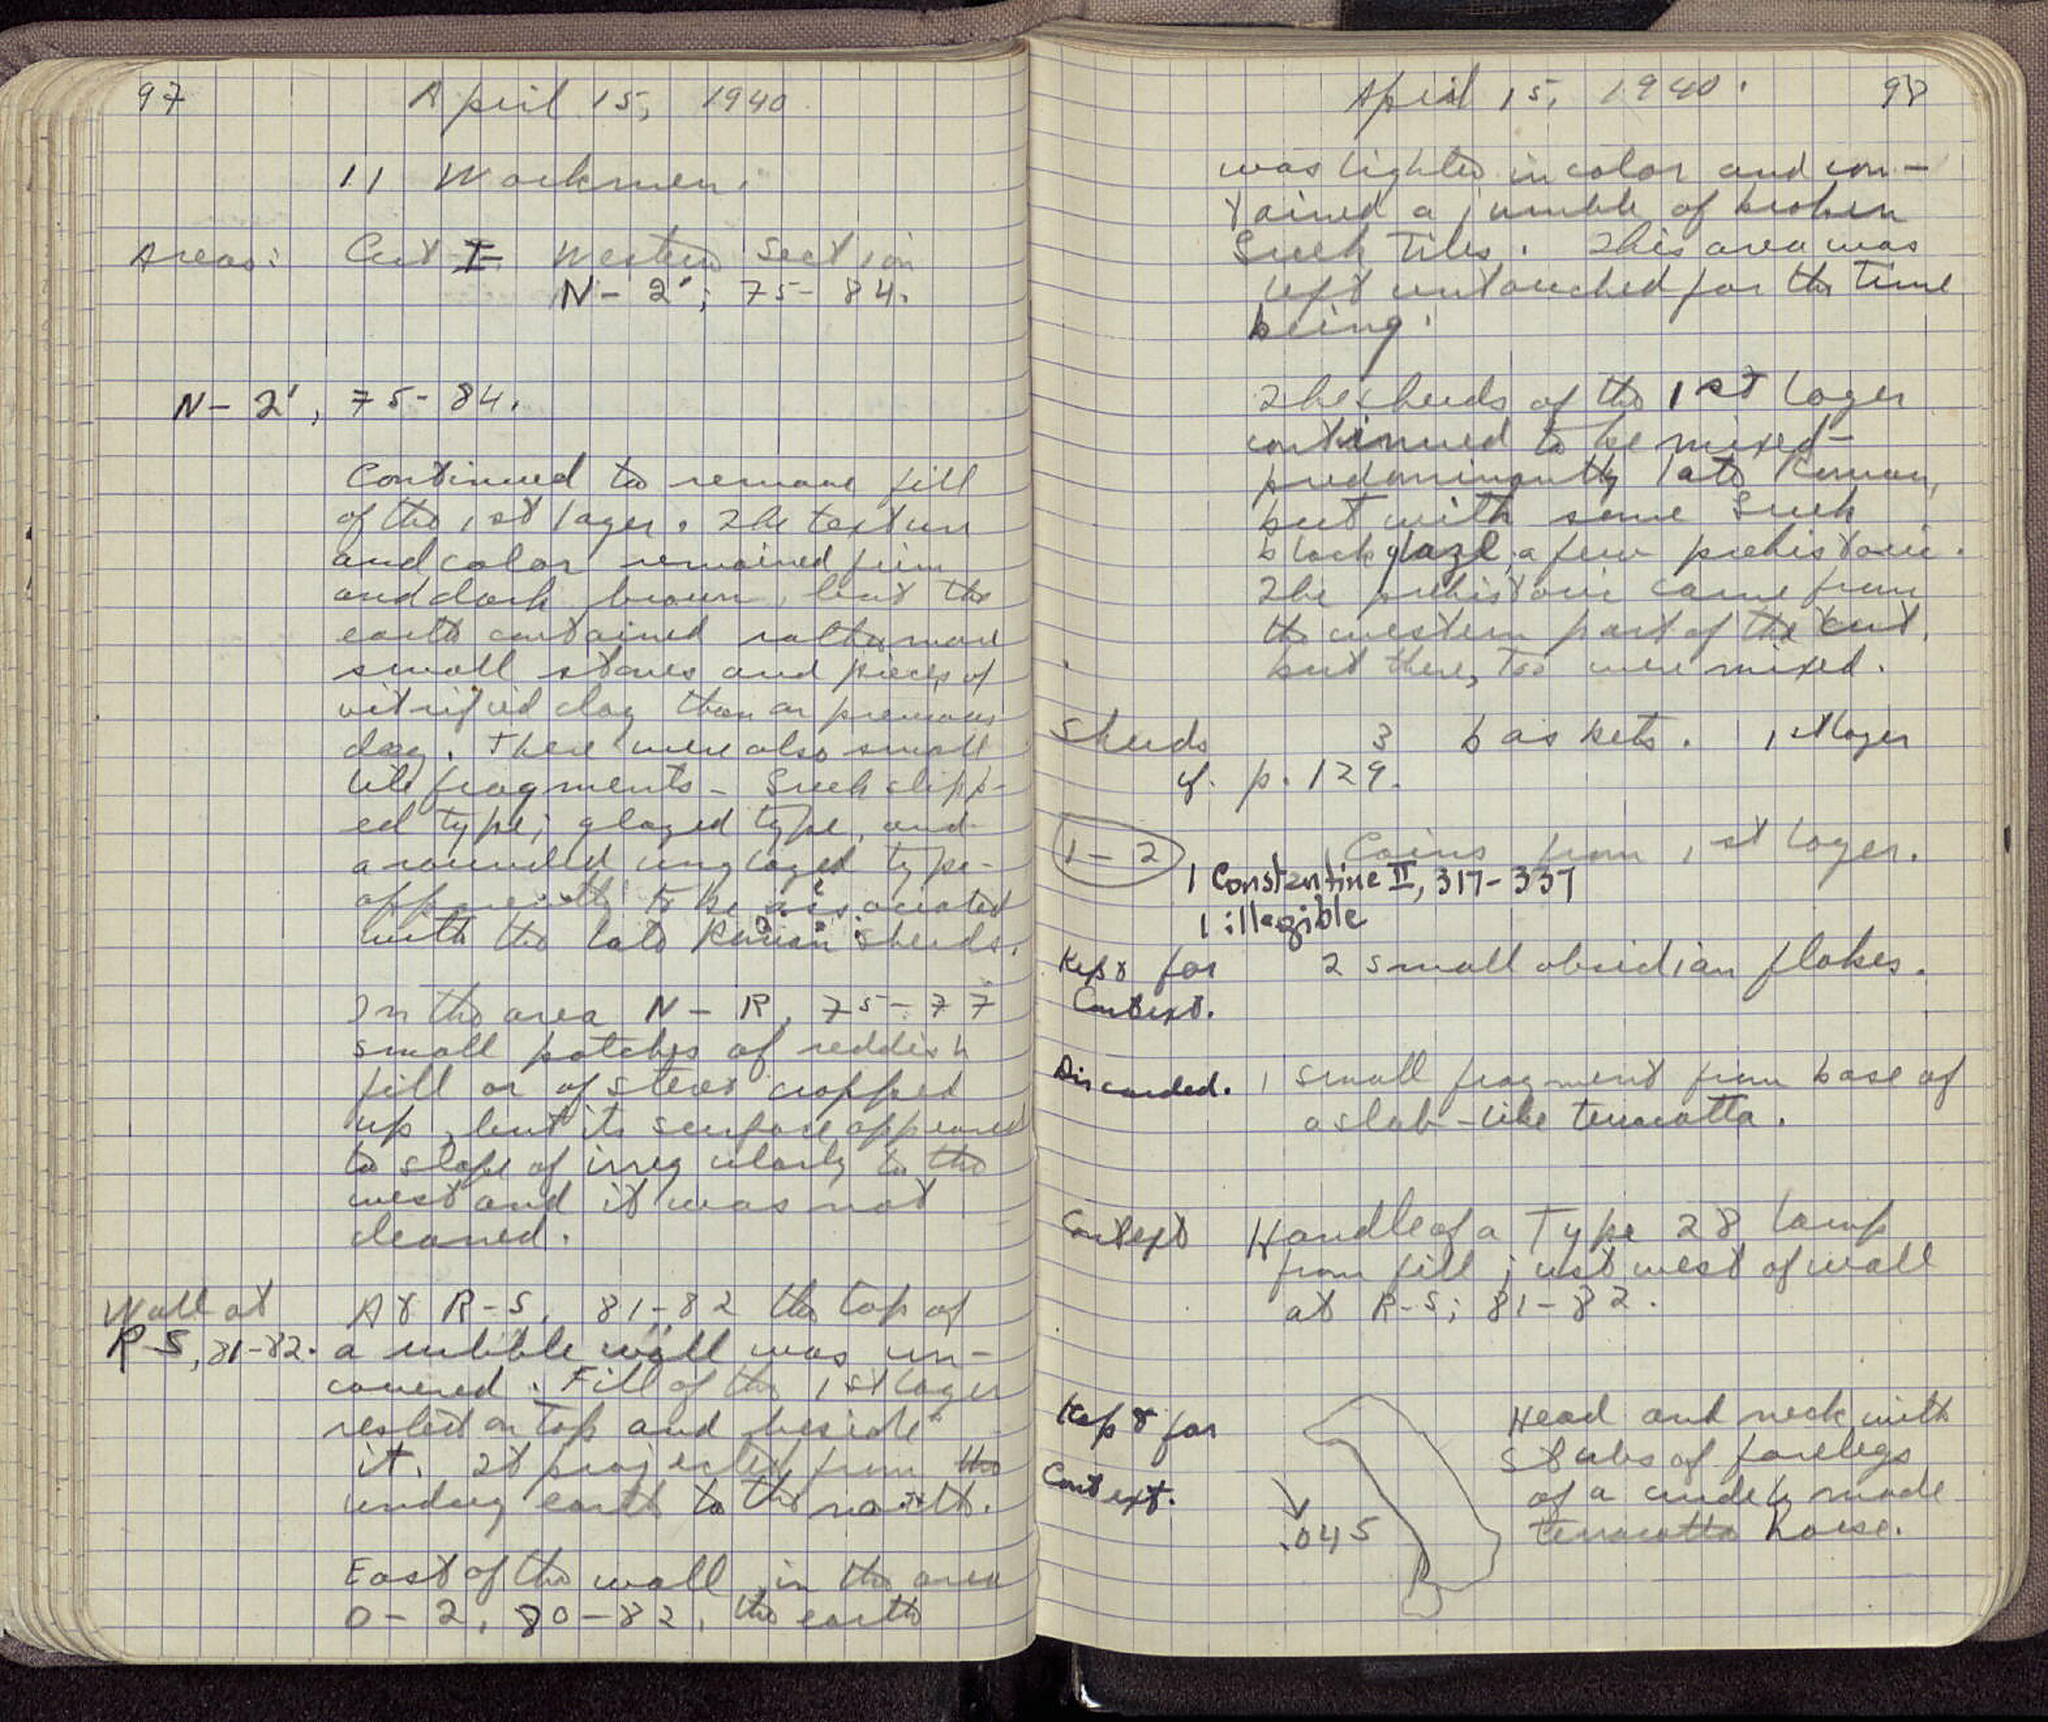 97
April 15, 1940
11 Workmen.
Areas: Cut I Western Section
N-2'; 75-84.
N-2', 75-84.
Continued to remove fill
of the 1st layer. The texture
and color remained firm
and dark brown, but the
earth contained rather more
small stones and pieces of
vitrified clay than on previous
day. There were also small
tile fragments - Greek slipp-
ed type; glazed type, and
a rounded unglazed type-
apparently to be associated
with the late Roman sherds.
In the area N-R, 75-77
small patches of reddish
fill or of stereo cropped
up, but its surface appeared
to slope of irregularly to the
west and it was not
cleaned.
Wall at
R-S, 81-82.
At R-S, 81-82 the top of
a rubble wall was un-
covered. Fill of the 1st layer
rested on top and beside
it. It projected from the
undug earth to the north.
East of the wall, in the area
O-2, 80-82, the earth
April 15, 1940. 98
was lighter in color and con-
tained a jumble of broken
Greek tiles. This area was
left untouched for the time
being.
The sherds of the 1st layer
continued to be mixed-
predominantly late Roman,
but with some Greek
black glaze, a few prehistoric.
The prehistoric came from
the western part of the cut,
but there, too were mixed.
Sherds 3 baskets. 1st layer
cf. p. 129.
1-2 Coins from 1st layer.
1 Constantine II, 317-337
1 illegible
Kept for 2 small obsidian flakes.
Context.
Discarded. 1 small fragment from base of
a slab-like terracotta.
Context Handle of a Type 28 lamp
from fill just west of wall
at R-S; 81-82.
Kept for
Context.
.045
Head and neck with
stubs of forelegs
of a crudely made
terracotta horse.